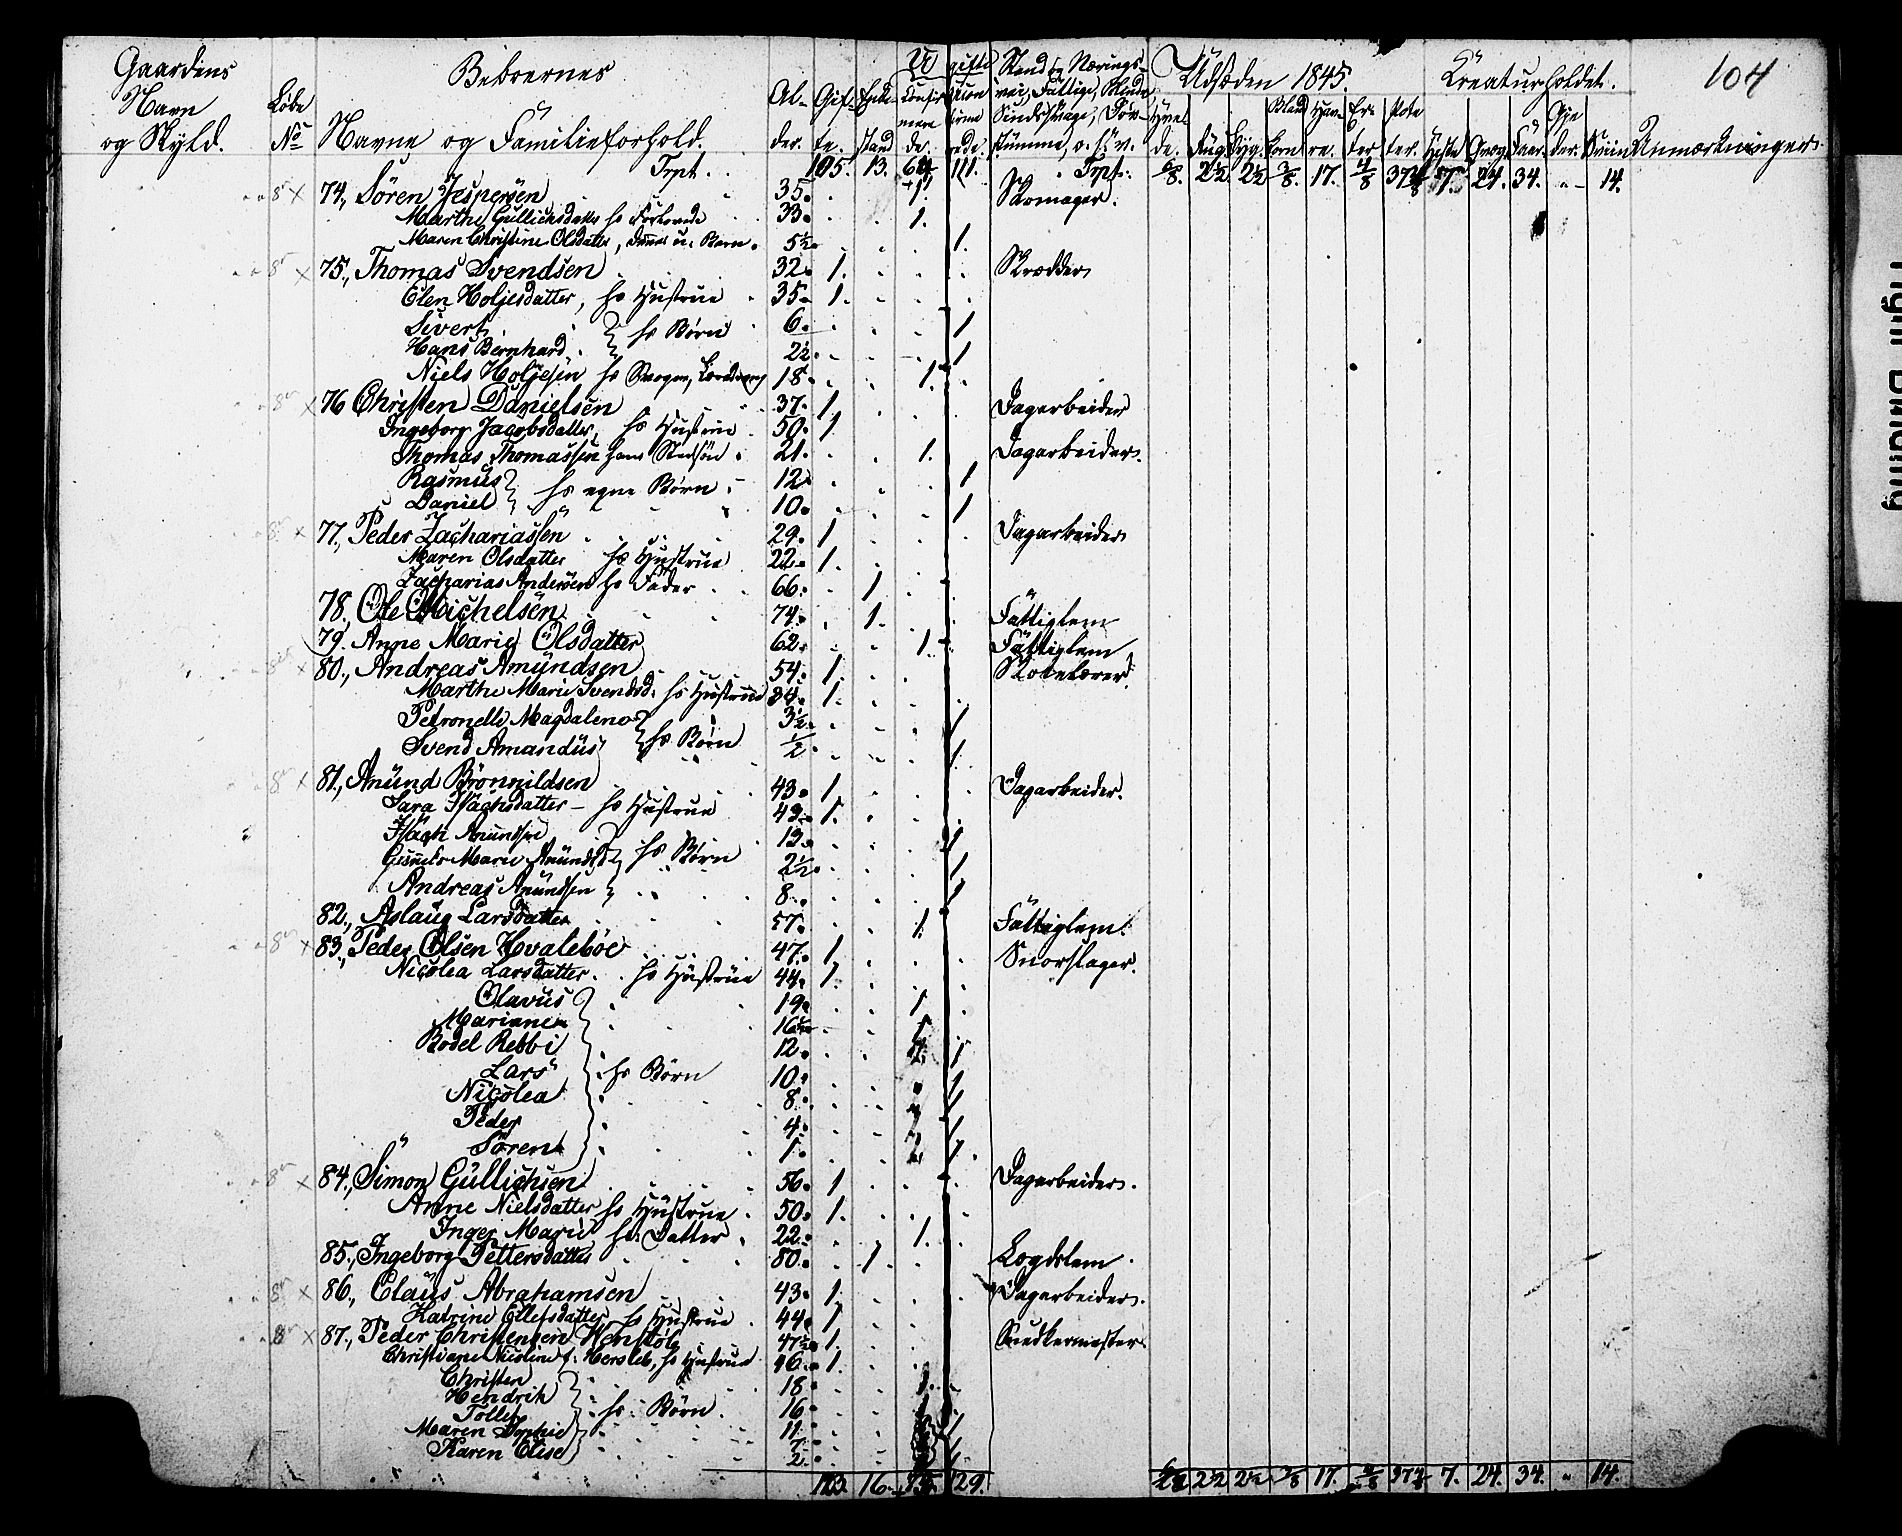 Gaardens Navn og Skyld. Løbe No Beboernes Navne og Familieforhold. Alder. Gifte. Enkestand Ugifte Confirmerede. Uconfirmerede. Stand og Næringsvei, Fattige, Blinde Sindssvage, Døvstumme, o. s. v. Udsæden 1845. Hvede. Rug Byg. Blandkorn Havre. Erter Poteter. Creaturholdet. Heste Qvæg. Faar. Gjeder. Sviin Anmærkninger. 104
Trpt. 105. 13. 64 111. Trpt: 6/8. 2½ 2½ 3/8. 17. 4/8 37½ 7. 24. 34. - 14.
74., Sören Jespersen 35. 1. Skomager.
Marthe Gullichsdatter hs Forlovede 33. 1.
Maren Christine Olsdatter, dennes u: Barn. 5½ 1.
75., Thomas Svendsen 32. 1. Skrædder
Elen Holjesdatter, hs Hustrue 35. 1.
Sivert 6. 1
Hans Bernhard. } hs Børn 2½. 1
Niels Holjesen hs Svoger, 18. 1.
76 Christen Danielsen 37. 1. Dagarbeider
Ingeborg Jacobsdatter, hs Hustrue 50. 1
Thomas Thomassen hans Stedsön. 21. 1. Dagarbeider.
Rasmus 12 1
Daniel } hs egne Børn. 10. 1
77., Peder Zachariassen 29. 1 Dagarbeider
Maren Olsdatter hs Hustrue 22. 1.
Zacharias Andersen hs Fader 66. 1
78. Ole Michelsen 74. 1. Fattiglem
79. Anne Marie Olsdatter 62. 1. Fattiglem
80., Andreas Amundsen 54. 1. Skolelærer.
Marthe Marie Svendsd. hs Hustrue 34. 1.
Petronelle Magdalene 3½. 1
Svend Amandus } hs Børn ½. 1.
81., Anund Brönnildsen 43. 1 Dagarbeider.
Sara Isachsdatter - hs Hustrue 42. 1.
Isach Anundsen 13. 1
Gunnild Marie Anundsd } hs Børn 2½. 1
Andreas Anundsen 8. 1
82., Aslaug Larsdatter 57. 1. Fattiglem.
83., Peder Olsen Hvalebøe 47. 1 Snorslager.
Nicolea Larsdatter. hs Hustrue 44. 1.
Olavus 19. 1
Mariane 16½ 1
Bodel Rebbi 12. 1
Lars } hs Børn 10. 1
Nicolea 8. 1
Peder 4. 1
Sören 1. 1.
84., Simon Gullichsen 56. 1 Dagarbeider.
Anne Nielsdatter hs Hustrue 50. 1.
Inger Marie hs: Datter. 22. 1.
85., Ingeborg Pettersdatter 80. 1. Lægdslem
86., Claus Abrahamsen 43. 1. Dagarbeider.
Katrine Ellefsdatter, hs Hustrue 44. 1
87., Peder Christensen Wenstøb 47½ 1. Snedkermester.
Christiane Nicoline f: Hersleb, hs Hustrue 46. 1.
Christen 18. 1.
Hendrik 16. 1
Tollef } hs: Børn 11 1
Maren Sophie 7. 1
Karen Elise 2. 1
123. 16. 83. 129. 6/8 2½ 2½ 3/8 17. 4/8 37½ 7. 24. 34. - 14.